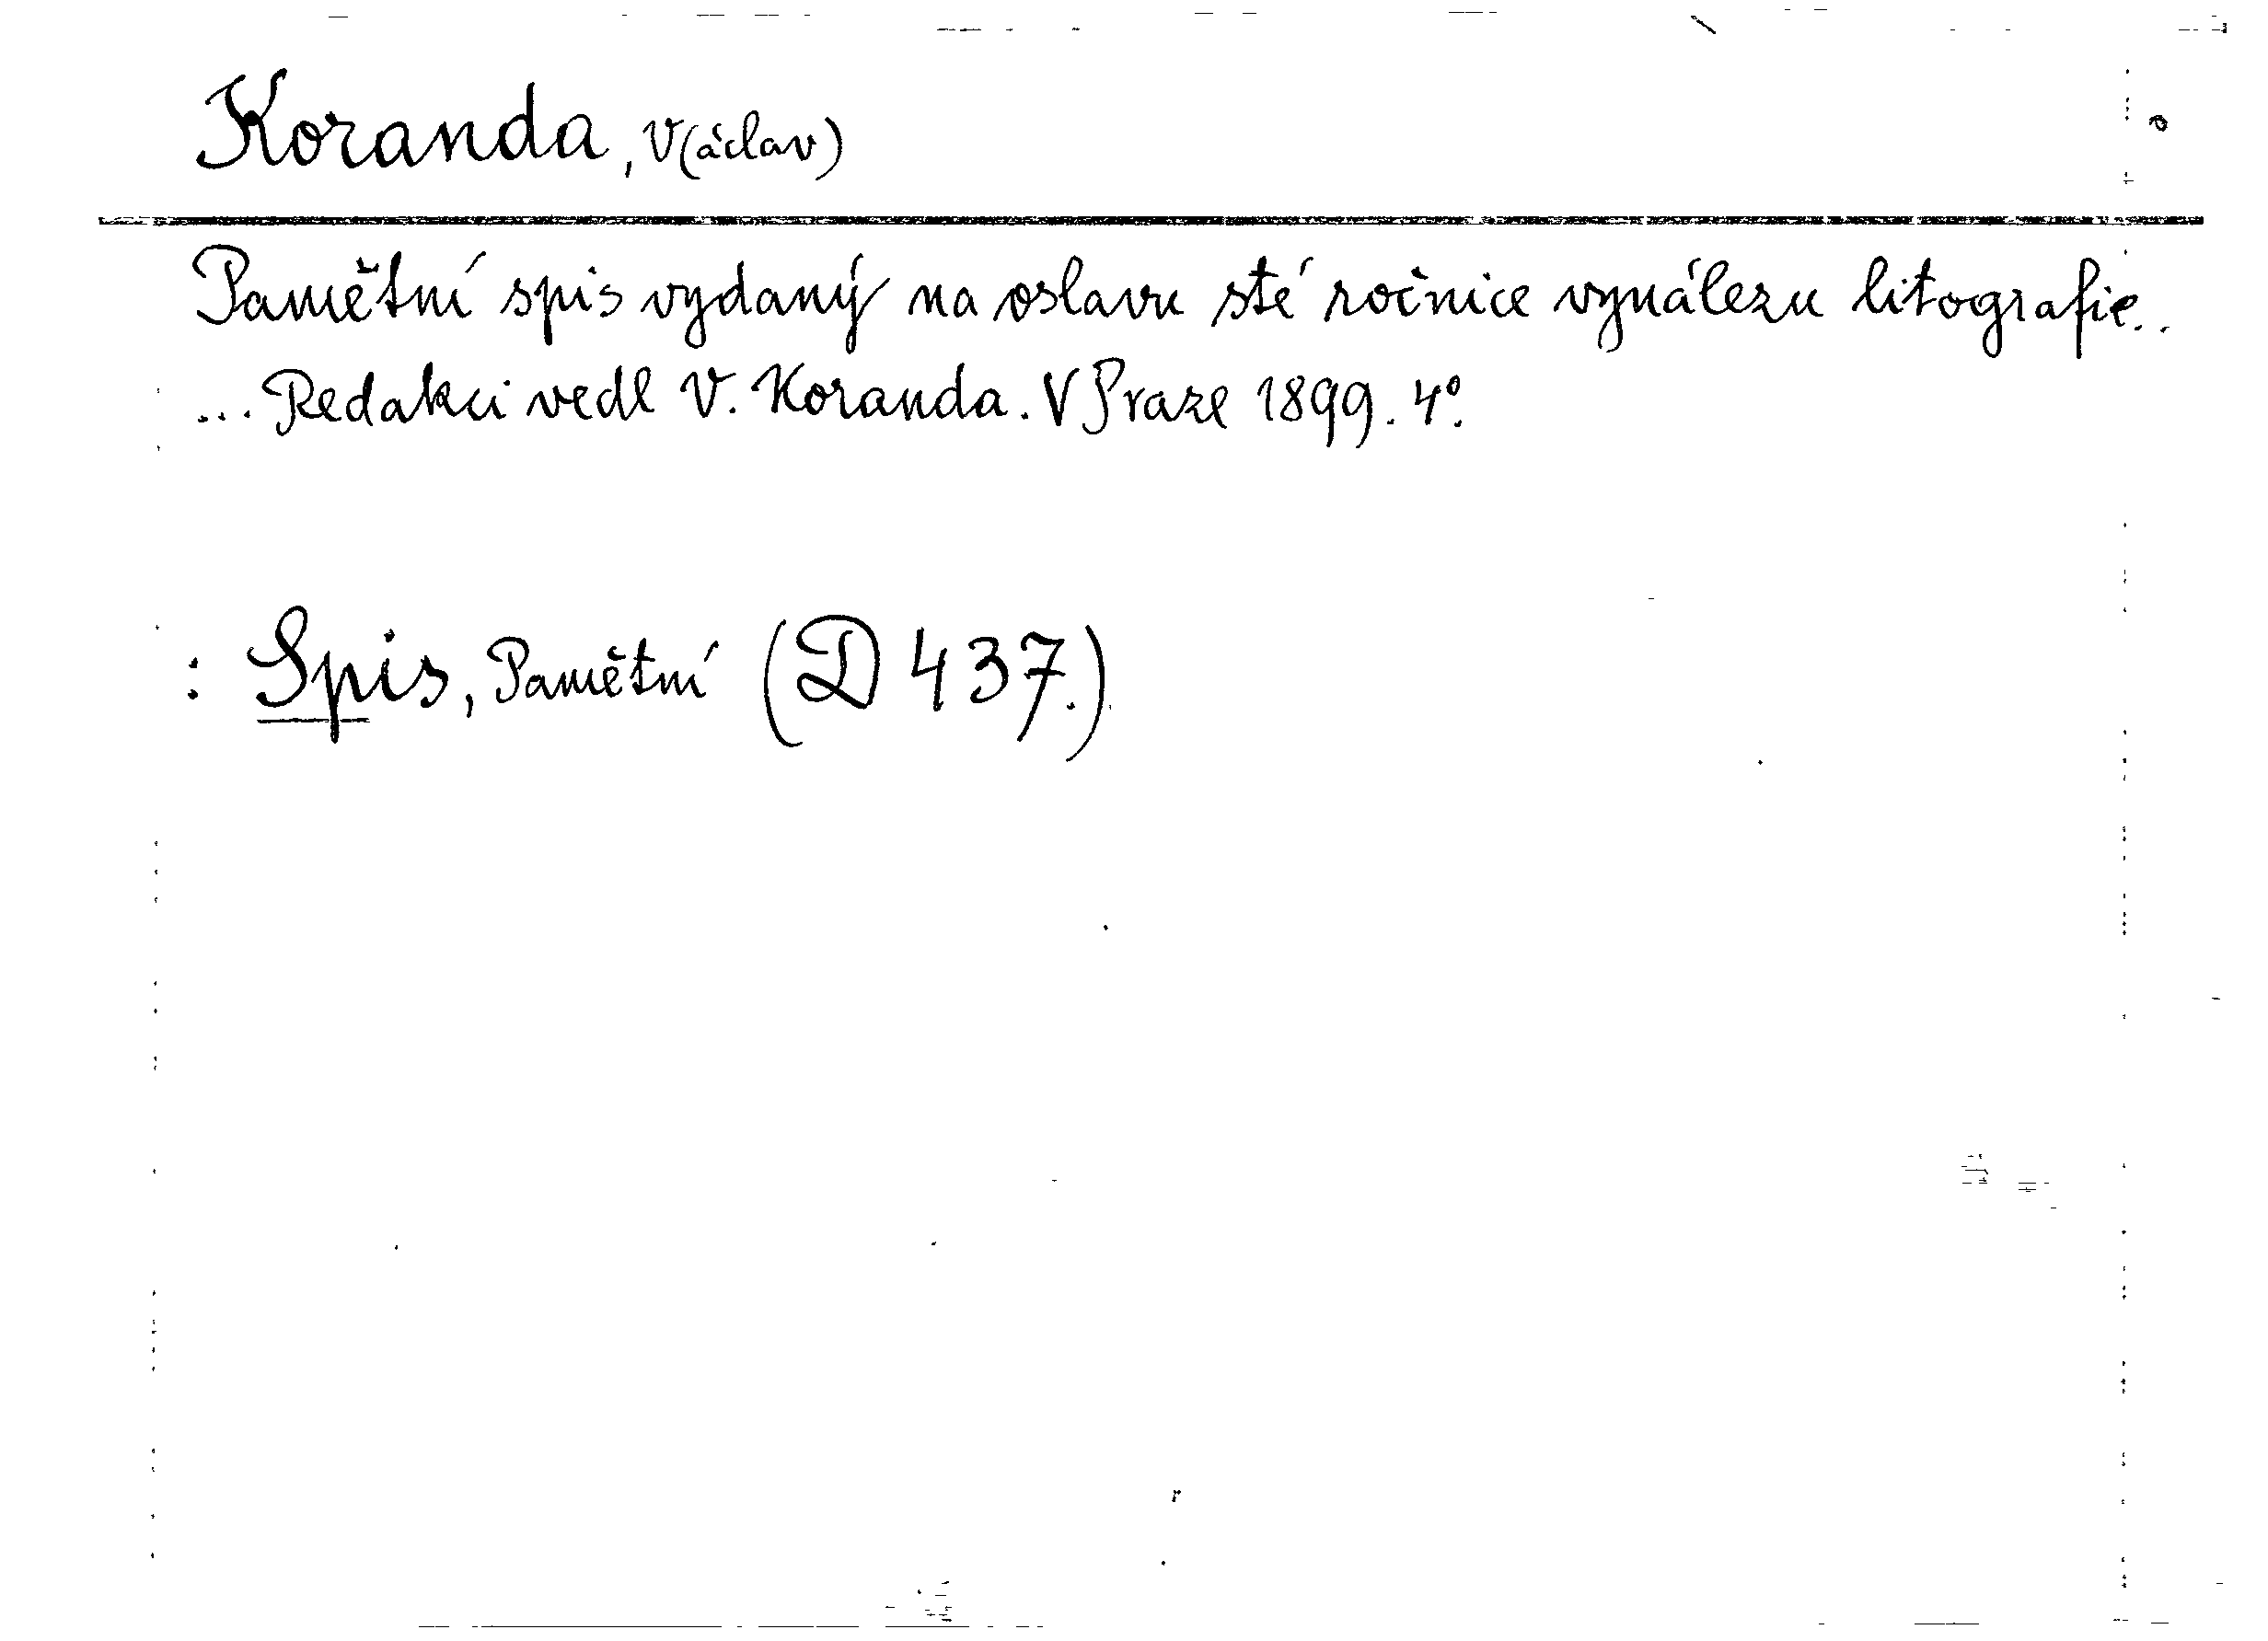 Koranda, V(áclav)
Pamětní spis vydaný na oslavu sté ročnice vynálezu litografie..
... Redakci vedl V. Koranda. V Praze 1899. 4°.
: Spis, Pamětní (D 437.)